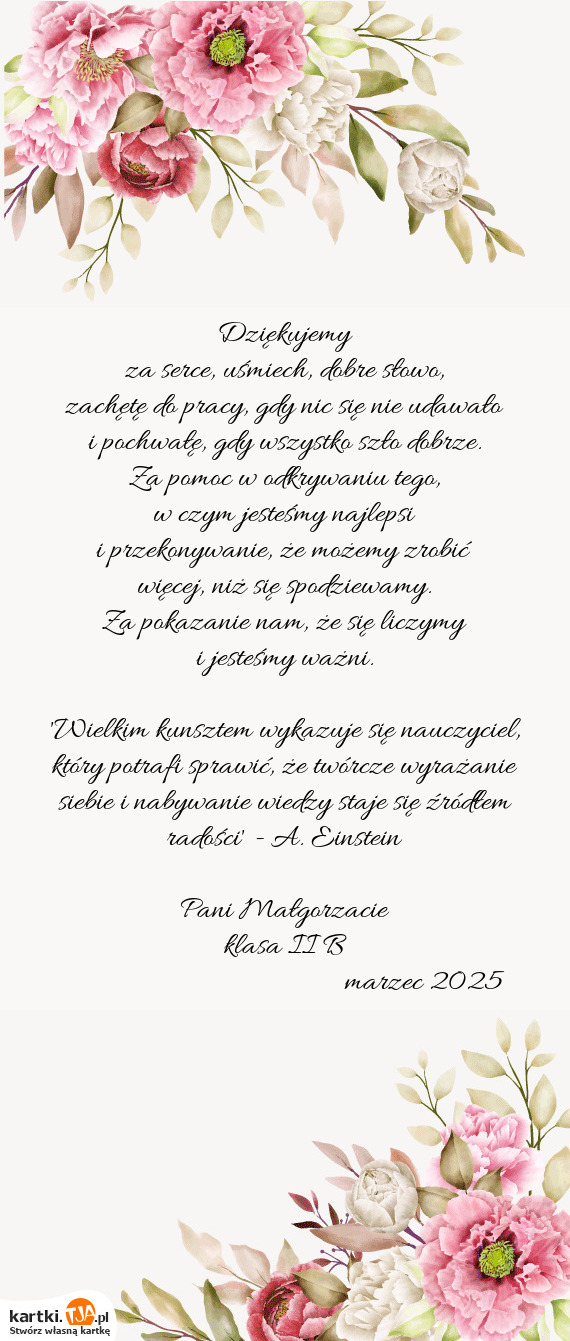 Dziękujemy
za serce, uśmiech, dobre słowo,
zachętę do pracy, gdy nic się nie udawało
i pochwałę, gdy wszystko szło dobrze.
Za pomoc w odkrywaniu tego,
w czym jesteśmy najlepsi
i przekonywanie, że możemy zrobić
więcej, niż się spodziewamy.
Za pokazanie nam, że się liczymy
i jesteśmy ważni.
'Wielkim kunsztem wykazuje się nauczyciel,
który potrafi sprawić, że twórcze wyrażanie
siebie i nabywanie wiedzy staje się źródłem
radości' - A. Einstein
Pani Małgorzacie
klasa II B
marzec 2025
kartki.TJA.pl
Stwórz własną kartkę